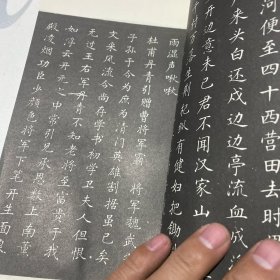 河便至四十西营田去时
来头白还戍边边亭流血成
开边意未已君不闻汉家山
村万落生荆杞纵有健妇把锄
雨湿声啾啾
杜甫丹青引赠曹将军霸 将军魏武
子孙于今为庶为清门英雄割据虽已矣
文采风流今尚存学书初学卫夫人但恨
无过王右军丹青不知老将至富贵于我
如浮云开元之中常引见承恩数上南薰
殿凌烟功臣少颜色将军下笔开生面良